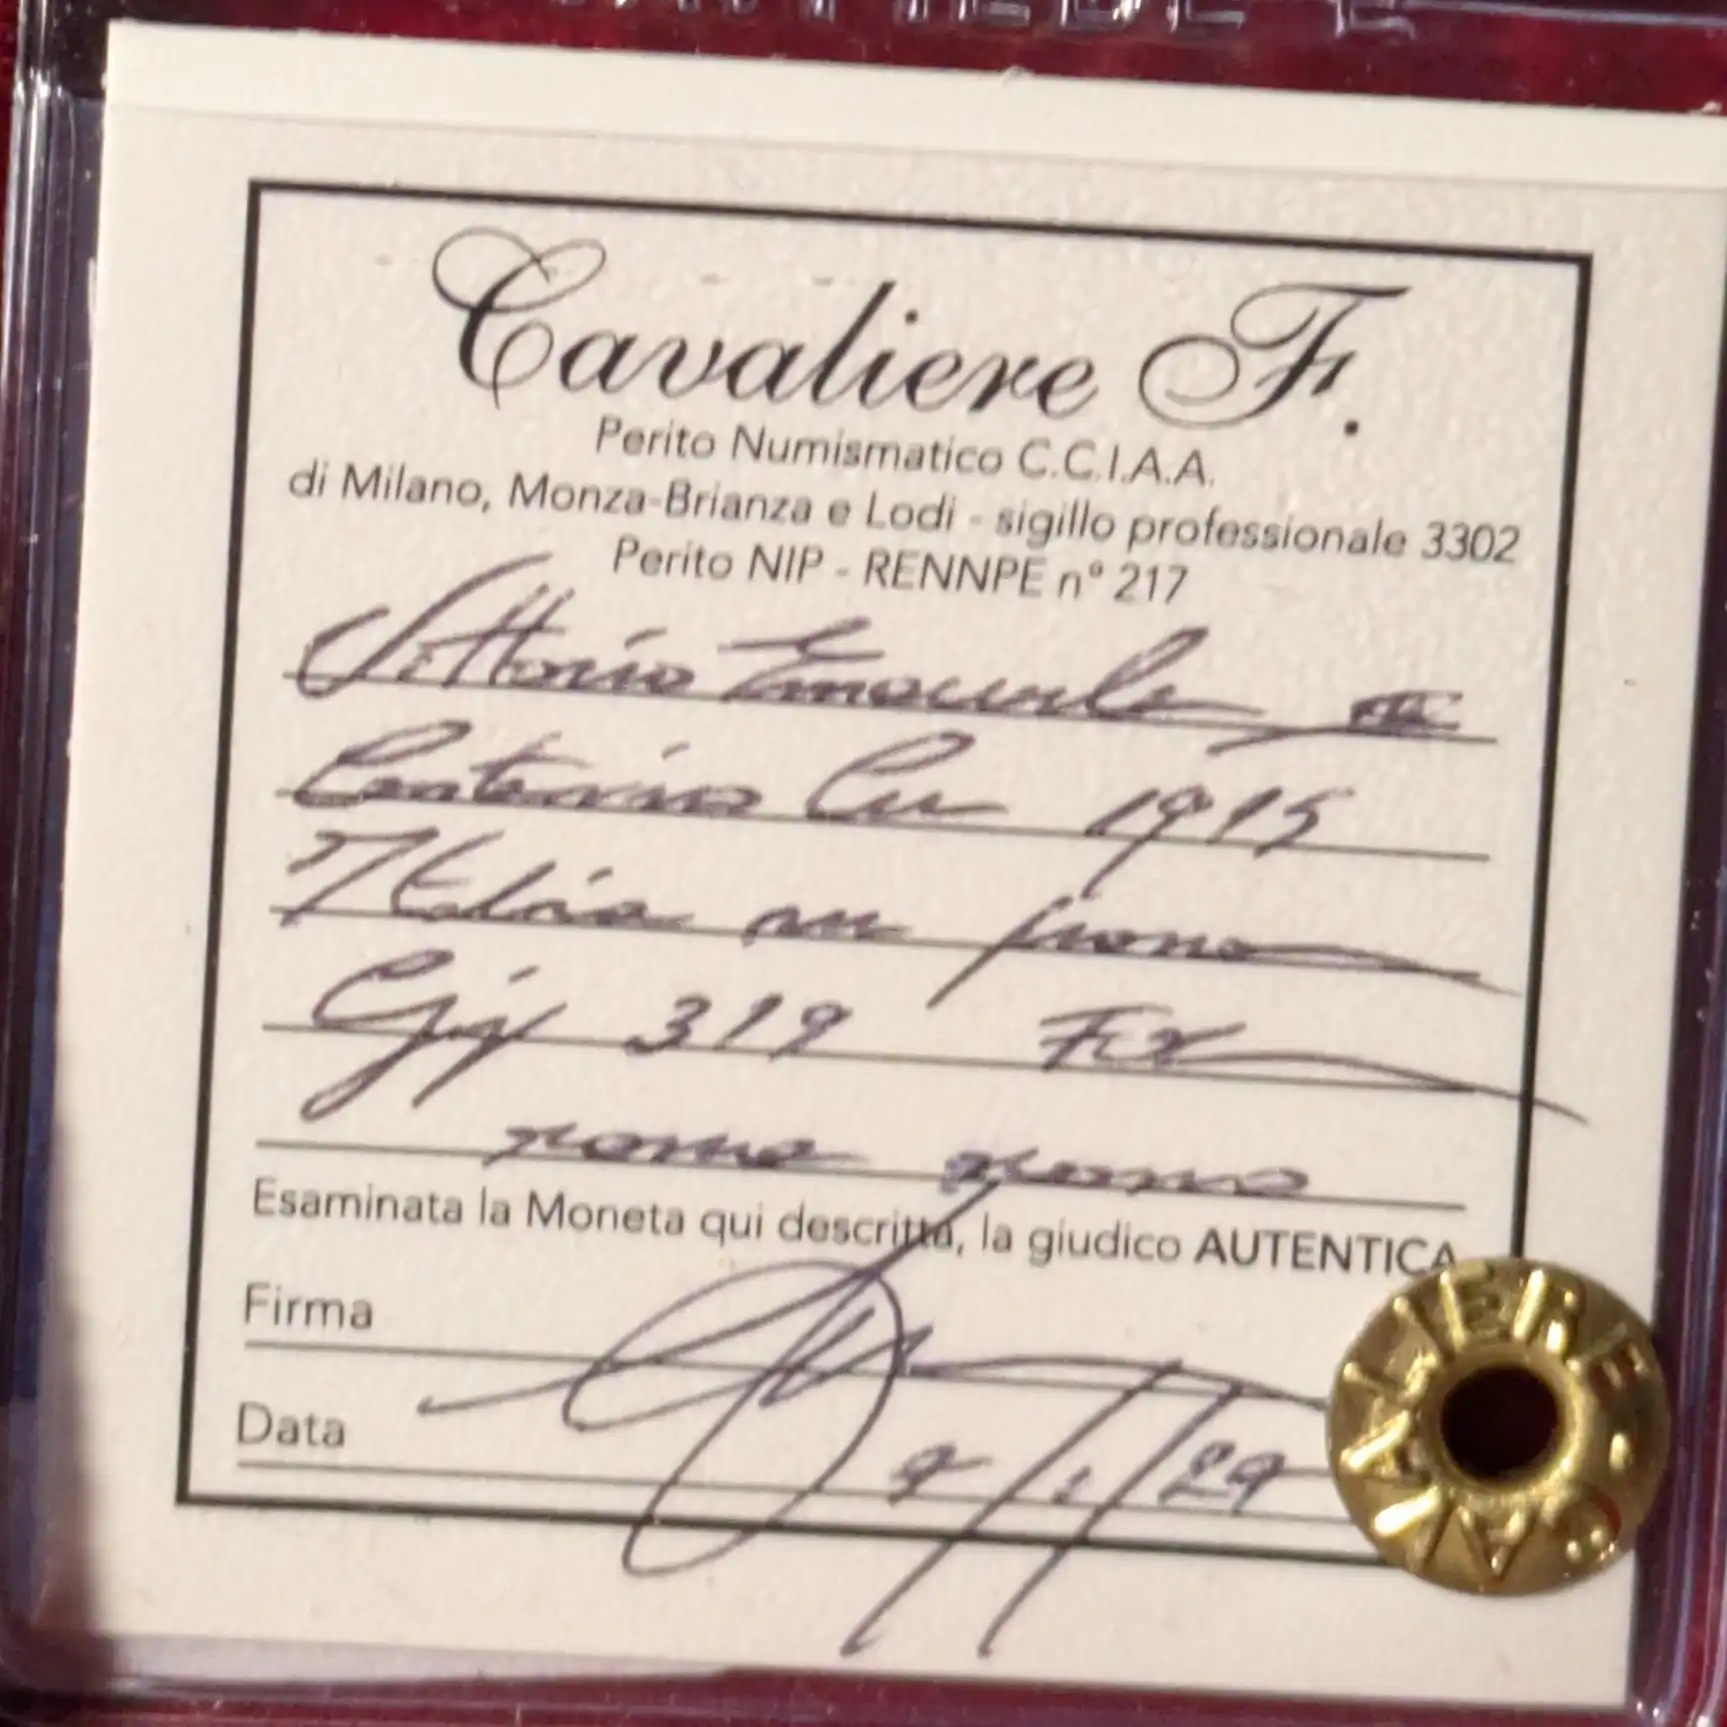 Cavaliere F.
Perito Numismatico C.C.I.A.A.
di Milano, Monza-Brianza e Lodi - sigillo professionale 3302
Perito NIP - RENNPE n° 217
Vittorio Emanuele III
Centesimo Cu 1915
Italia su prora
Gig 319
rosso rosso
Esaminata la Moneta qui descritta, la giudico AUTENTICA
Firma
Data 9/1/29
CAVALIERE F.